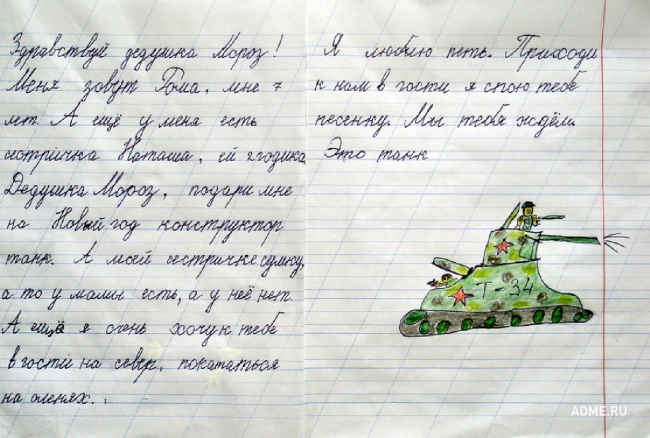 Здравствуй дедушка Мороз!
Меня зовут Рома, мне 7
лет. А ещё у меня есть
сестричка Наташа, ей 2 годика.
Дедушка Мороз, подари мне
на Новый год конструктор
танк. А моей сестричке сумку,
а то у мамы есть, а у неё нет.
А ещё я очень хочу к тебе
в гости на север, покататься
на оленях.
Я люблю петь. Приходи
к нам в гости я спою тебе
песенку. Мы тебя ждём.
Это танк
Т-34
ADME.RU